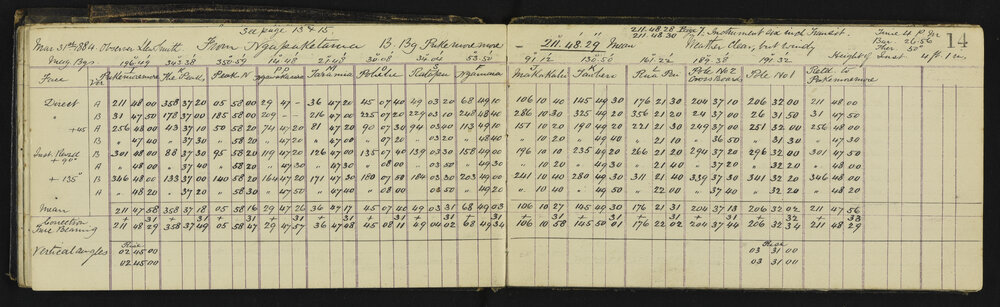 See page 13 & 15. 211.48.28 Page 7. Instrument six inch Transit. Time 4 P.M.
211.48.30 Bar 26.56 14
Mar 31st 1884 Observer Les Smith From Ngapuketurua B. Bg Pukemoremore — 211.48.29 Mean Weather Clear, but windy Ther 50°
Mag Bgs 196.49 343.35 350.59 14.48 21.48 30.08 34.04 53.50 91.12 130.50 161.22 189.38 191.32 Height of Inst 4 ft 1 in.
Face Ver Pukemoremore Peak N Taramia Ngamuna Makahaki Pole No 2 Cross Board Pole No 1 Retd to Pukemoremore
Direct A 211 48 00 358 37 20 05 58 00 29 47 - 36 47 20 45 07 40 49 03 20 68 49 10 106 10 40 145 49 30 176 21 30 204 37 10 206 32 00 211 48 00
" B 31 47 50 178 37 00 185 58 00 209 - - 216 47 00 225 07 20 229 03 10 248 48 40 286 10 30 325 49 20 356 21 20 24 37 00 26 31 50 31 47 50
" +45 A 256 48 00 43 37 10 50 58 20 74 47 20 81 47 20 90 07 30 94 03 40 113 49 10 151 10 20 190 49 20 221 21 30 249 37 00 251 32 00 256 48 00
" B " 47 40 " 37 30 " 58 20 " 47 20 " 47 00 " 07 20 " 03 20 " 48 40 " 10 20 " 49 20 " 21 10 " 36 50 " 31 30 " 47 30
Inst. Revsd B 301 48 00 88 37 30 95 58 20 119 47 20 126 47 00 135 07 40 139 03 30 158 49 00 196 10 10 235 49 20 266 21 20 294 37 20 296 32 00 301 47 50
" +90° A " 48 00 " 37 40 " 58 20 " 47 30 " 47 30 " 08 00 " 03 50 " 49 30 " 10 20 " 49 30 " 21 40 " 37 20 " 32 20 " 48 00
" +135° B 346 48 00 133 37 00 140 58 20 164 47 20 171 47 30 180 07 50 184 03 30 203 49 00 241 10 40 280 49 30 311 21 40 339 37 30 341 32 20 346 48 00
" A " 48 20 " 37 20 " 58 30 " 47 50 " 47 40 " 08 00 " 03 50 " 49 20 " 10 40 " 49 50 " 22 00 " 37 40 " 32 20 " 48 20
Mean 211 47 58 358 37 18 05 58 16 29 47 26 36 47 17 45 07 40 49 03 31 68 49 03 106 10 27 145 49 30 176 21 31 204 37 13 206 32 02 211 47 56
Correction + 31 + 31 + 31 + 31 + 31 + 31 + 31 + 31 + 31 + 31 + 31 + 31 + 32 + 33
True Bearing 211 48 29 358 37 49 05 58 47 29 47 57 36 47 48 45 08 11 49 04 02 68 49 34 106 10 58 145 50 01 176 22 02 204 37 44 206 32 34 211 48 29
Vertical angles Rise 02 45 00 Rise 03 31 00
02 45 00 03 31 00